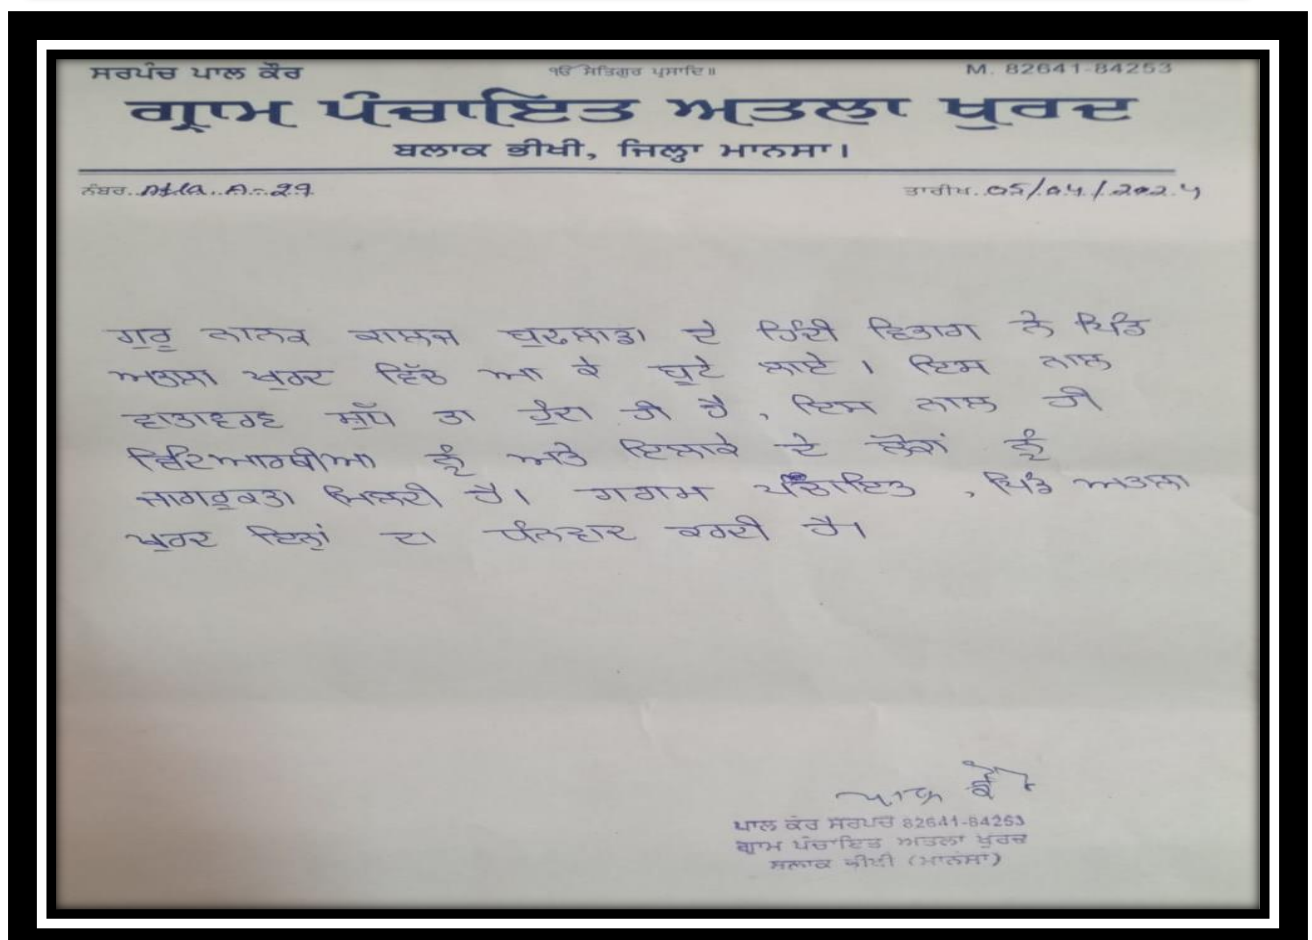 ਸਰਪੰਚ ਪਾਲ ਕੌਰ
ੴ ਸਤਿਗੁਰ ਪ੍ਰਸਾਦਿ॥
M. 82641-84253
ਗ੍ਰਾਮ ਪੰਚਾਇਤ ਅਤਲਾ ਖੁਰਦ
ਬਲਾਕ ਭੀਖੀ, ਜਿਲ੍ਹਾ ਮਾਨਸਾ।
ਨੰਬਰ. Atla A-29
ਤਾਰੀਖ. 05/04/2024
ਗੁਰੂ ਨਾਨਕ ਕਾਲਜ ਬੁਢਲਾਡਾ ਦੇ ਹਿੰਦੀ ਵਿਭਾਗ ਨੇ ਪਿੰਡ
ਅਤਲਾ ਖੁਰਦ ਵਿੱਚ ਆ ਕੇ ਬੂਟੇ ਲਾਏ । ਇਸ ਨਾਲ
ਵਾਤਾਵਰਣ ਸ਼ੁੱਧ ਤਾ ਹੁੰਦਾ ਹੀ ਹੈ , ਇਸ ਨਾਲ ਹੀ
ਵਿਦਿਆਰਥੀਆ ਨੂੰ ਅਤੇ ਇਲਾਕੇ ਦੇ ਲੋਕਾਂ ਨੂੰ
ਜਾਗਰੂਕਤਾ ਮਿਲਦੀ ਹੈ। ਗਰਾਮ ਪੰਚਾਇਤ , ਪਿੰਡ ਅਤਲਾ
ਖੁਰਦ ਇਨ੍ਹਾਂ ਦਾ ਧੰਨਵਾਦ ਕਰਦੀ ਹੈ।
ਪਾਲ ਕੌਰ
ਪਾਲ ਕੌਰ ਸਰਪੰਚ 82641-84253
ਗ੍ਰਾਮ ਪੰਚਾਇਤ ਅਤਲਾ ਖੁਰਦ
ਬਲਾਕ ਭੀਖੀ (ਮਾਨਸਾ)